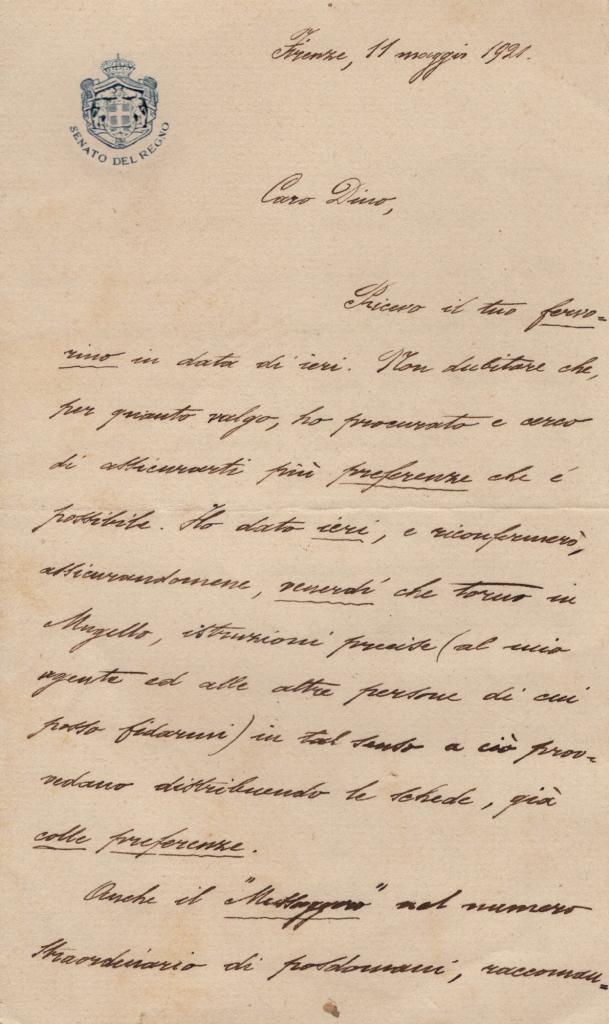 Firenze, 11 maggio 1921.
SENATO DEL REGNO
Caro Dino,
Ricevo il tuo fervo=
rino in data di ieri. Non dubitare che,
per quanto valgo, ho procurato e cerco
di assicurarti più preferenze che è
possibile. Ho dato ieri, e riconfermerò,
assicurandomene, venerdì che torno in
Mugello, istruzioni precise (al mio
agente ed alle altre persone di cui
posso fidarmi) in tal senso a ciò prov=
vedano distribuendo le schede, già
colle preferenze.
Anche il "Messaggero" nel numero
straordinario di posdomani, raccoman=